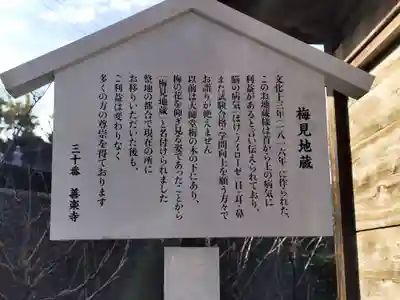 梅見地蔵
文化十三年(一八一六年)に作られた、
このお地蔵様は首から上の病気に
利益があると言い伝えられており、
脳の病気(ぼけ・ノイローゼ)・目・耳・鼻
また試験合格・学問向上を願う方々で
お詣りが絶えません
以前は大師堂、梅の木の下にあり、
梅の花を仰ぎ見る姿であったことから
「梅見地蔵」と名付けられました
整地の都合で現在の所に
お移りいただいた後も、
ご利益は変わりなく
多くの方の尊崇を得ております
三十番 善楽寺